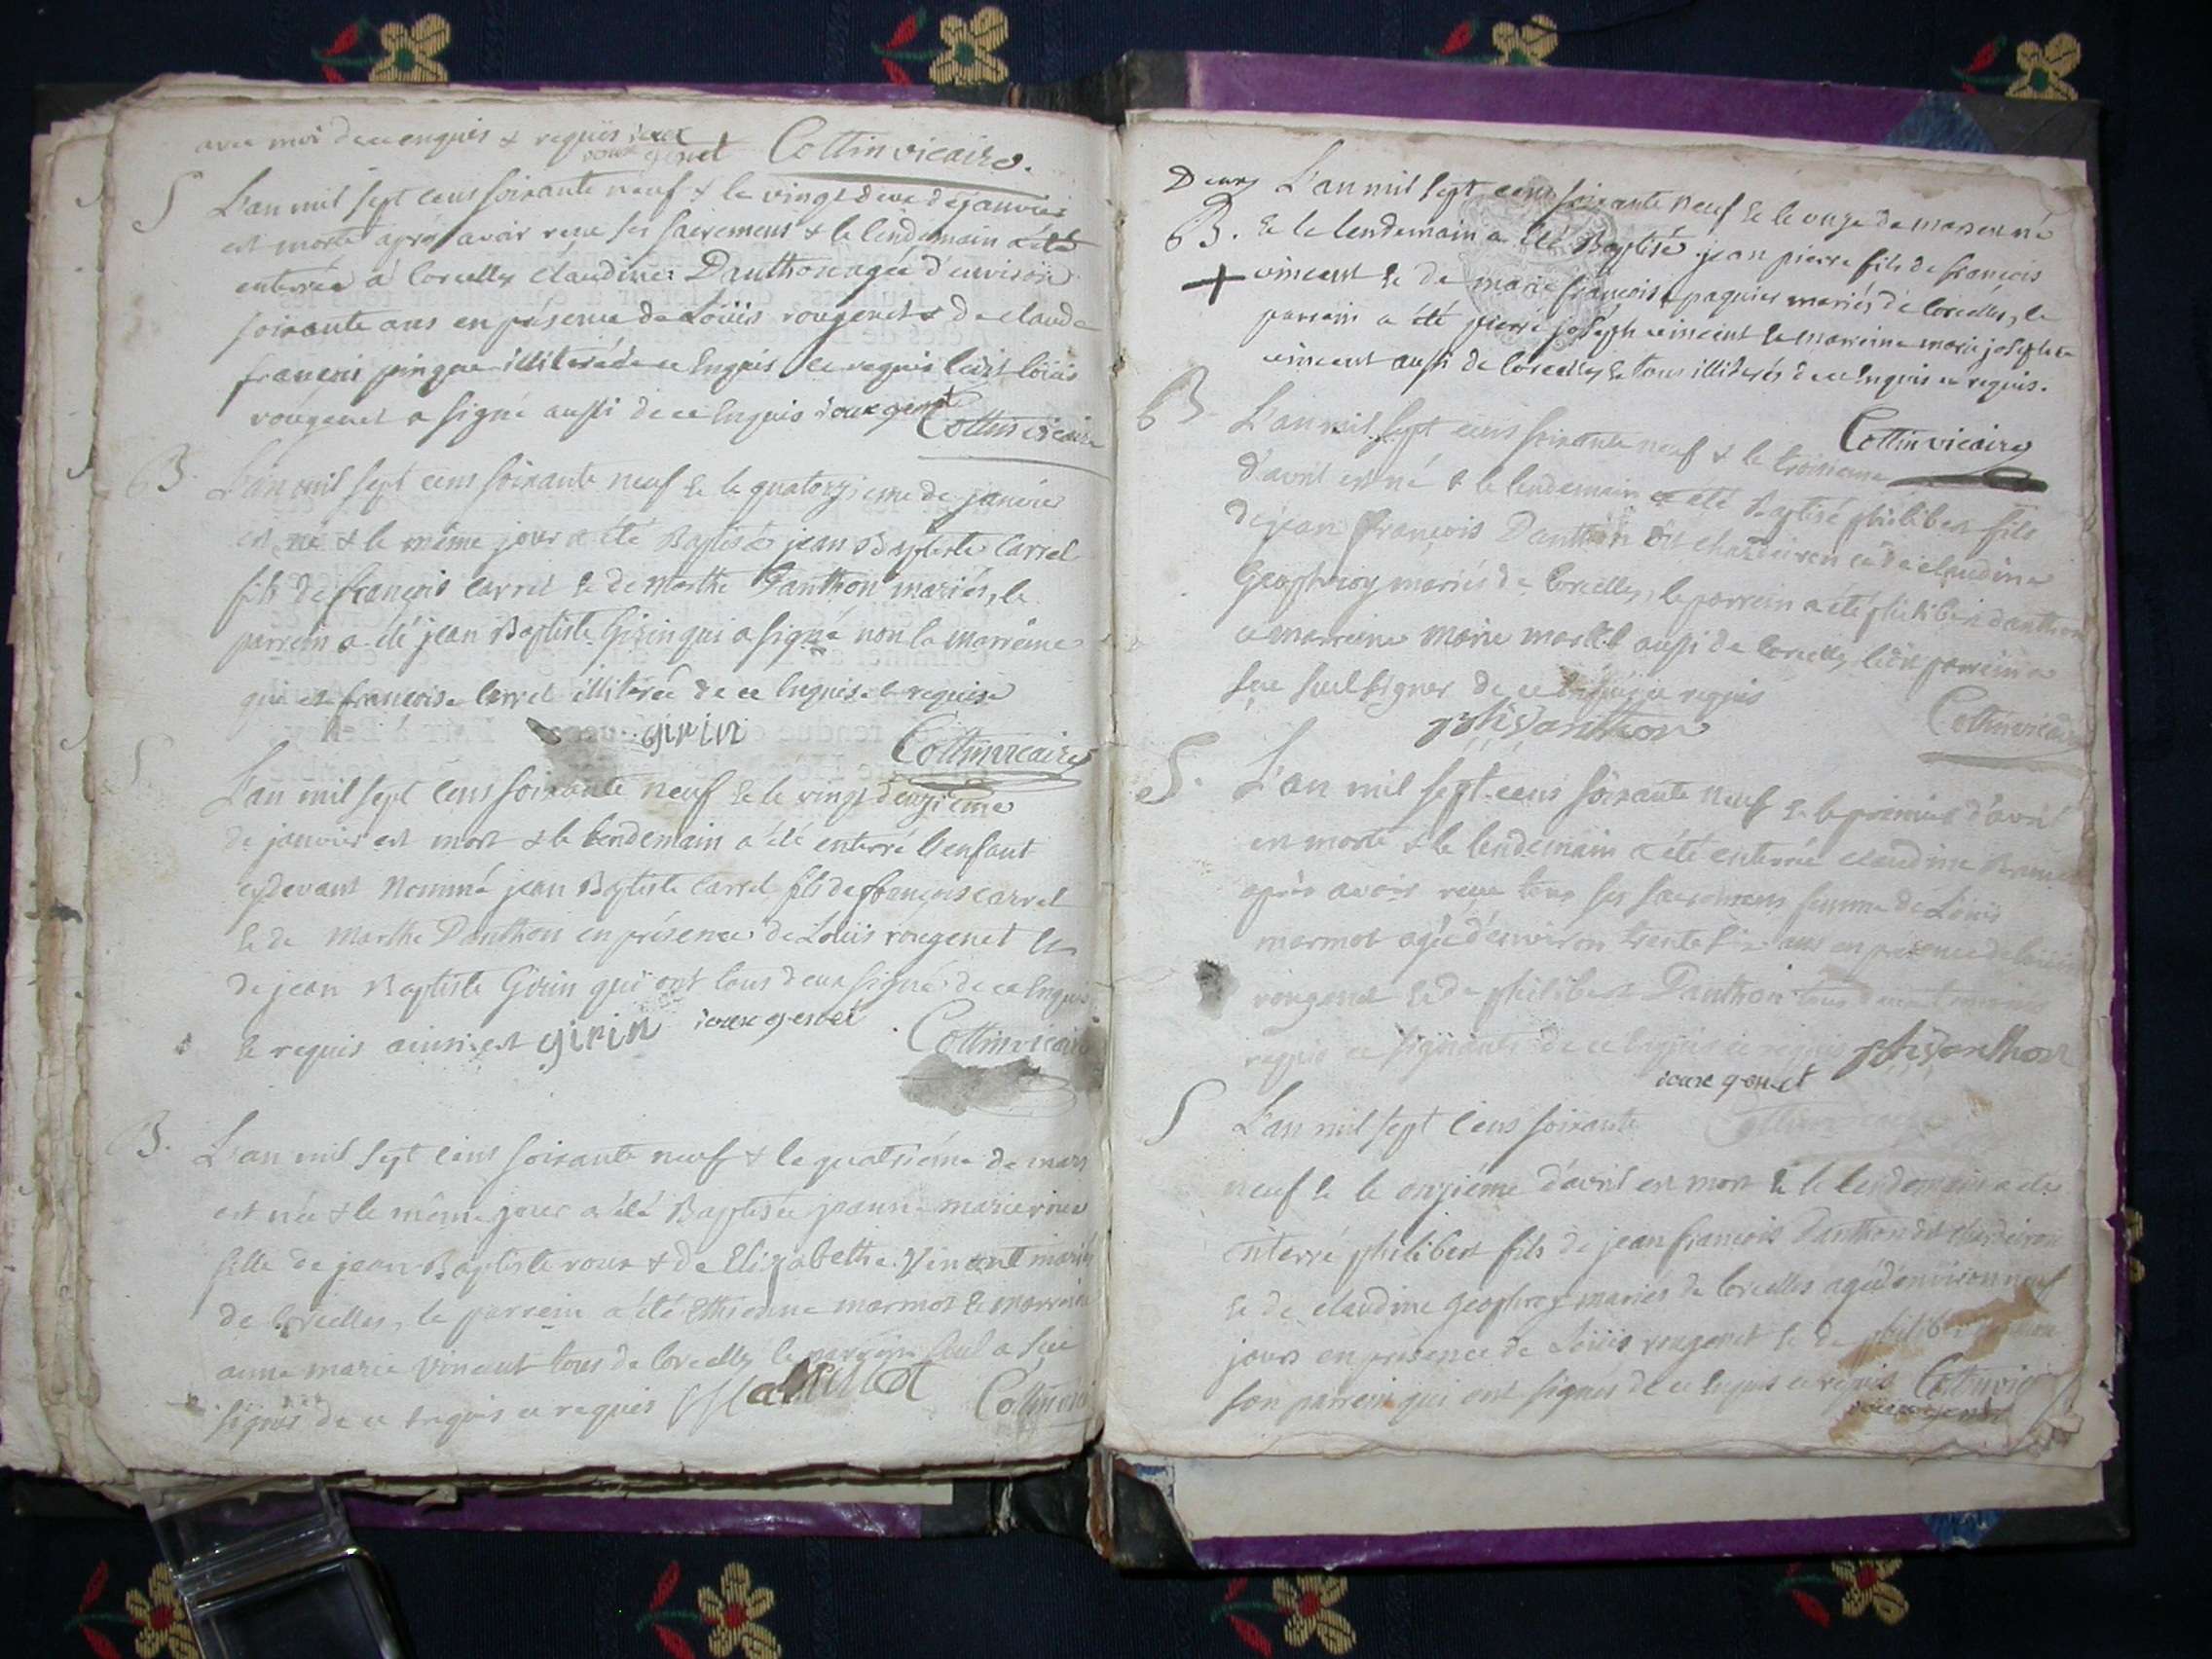 avec moi de ce enquis & requis
rouxgenet Cottin vicaire.
S L'an mil sept cens soixante neuf & le vingt deux de janvier
est morte après avoir reçu ses sacremens & le lendemain a été
enterrée à Corcelles claudine Danthon agée d'environ
soixante ans en présence de Loüis rougenet & de claude
françois illiteré de ce enquis et requis ledit loüis
rougenet a signé aussi de ce enquis rouxgenet
Cottin vicaire
B. L'an mil sept cens soixante neuf & le quatorzieme de janvier
est né & le même jour a été Baptisé jean Baptiste Carrel
fils de françois Carrel & de Marthe Danthon mariés, le
parrein a été jean Baptiste Girin qui a signé non la marreine
qui est francoise Carrel illiterée de ce enquise et requise
girin Cottin vicaire
S L'an mil sept cens soixante neuf & le vingt deuzieme
de janvier est mort & le lendemain a été enterré l'enfant
cydevant Nommé jean Baptiste Carrel fils de françois carrel
& de Marthe Danthon en présence de Loüis rougenet &
de jean Baptiste Girin qui ont tous deux signé de ce enquis
& requis ainsi est girin rouxgenet Cottin vicaire
B. L'an mil sept cens soixante neuf & le quatriéme de mars
est née & le même jour a été Baptisée jeanne marie roux
fille de jean Baptiste roux & de Elizabethe Vincent mariés
de Corcelles, le parrein a été Ethienne marmot & marreine
anne marie Vincent tous de Corcelles le parrein seul a sçu
signer de ce enquis et requis Cottin vicai
L'an mil sept cens soixante neuf & le onze de mars est né
B. & le lendemain a été Baptisé jean pierre fils de françois
+ vincent & de marie françoise paquier mariés de Corcelles, le
parrein a été pierre joseph vincent la marreine marie josephte
vincent aussi de Corcelles & tous illiterés de ce enquis et requis.
Cottin vicaire
B L'an mil sept cens soixante neuf & le troisieme
d'avril est né & le lendemain a été Baptisé philibert fils
de jean François Danthon dit et de claudine
Geophray mariés de Corcelles, le parrein a été philibert danthon
et marreine Marie aussi de Corcelles ledit parrein a
sçu seul signer de ce enquis et requis
phi Danthon Cottin vicaire
S. L'an mil sept cens soixante neuf & le premier d'avril
est morte & le lendemain a été enterrée claudine
après avoir reçue tous ses sacremens femme de Loüis
marmot agée d'environ trente ans en présence de loüis
rougenet & de philibert Danthon tous deux
requis et signants de ce enquis et requis phi Danthon
rouxgenet
S L'an mil sept cens soixante Cottin vicaire
neuf & le onzieme d'avril est mort & le lendemain a été
enterré philibert fils de jean françois Danthon dit
& de claudine Geophray mariés de Corcelles agé d'environ neuf
jours en présence de Loüis rougenet & de philibert
son parrein qui ont signés de ce enquis et requis Cottin vic
rouxgenet